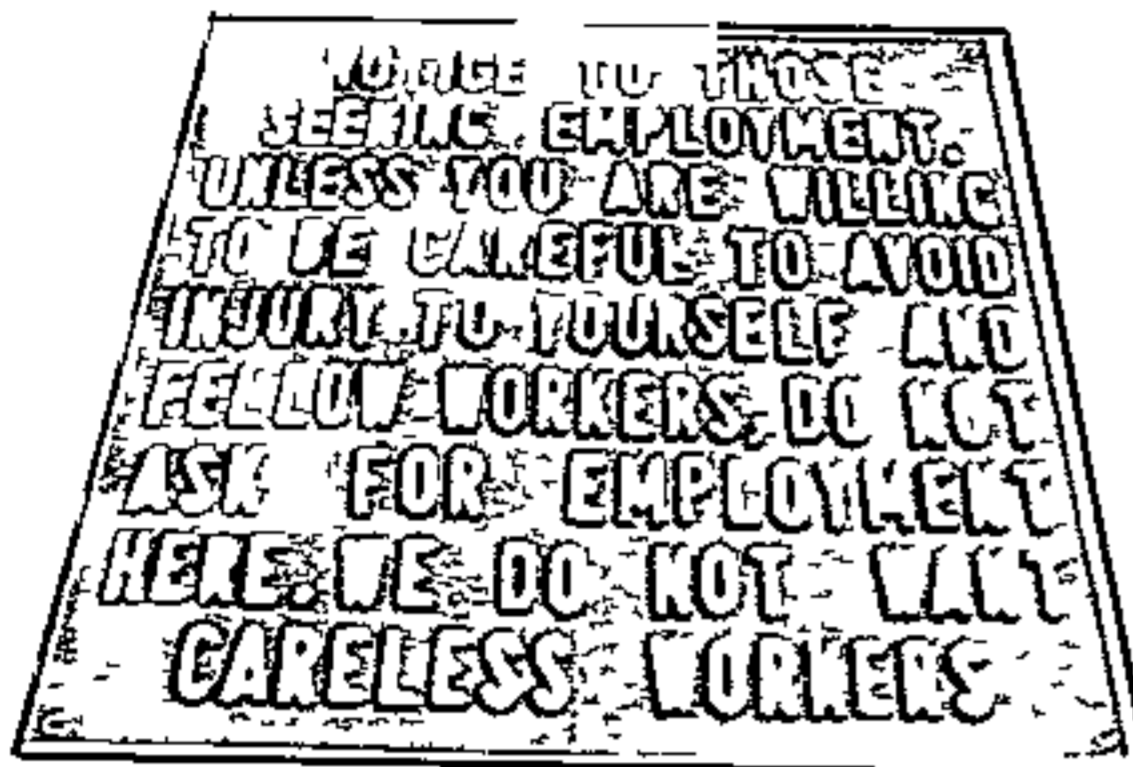 NOTICE TO THOSE
SEEKING EMPLOYMENT.
UNLESS YOU ARE WILLING
TO BE CAREFUL TO AVOID
INJURY TO YOURSELF AND
FELLOW WORKERS, DO NOT
ASK FOR EMPLOYMENT
HERE. WE DO NOT WANT
CARELESS WORKERS